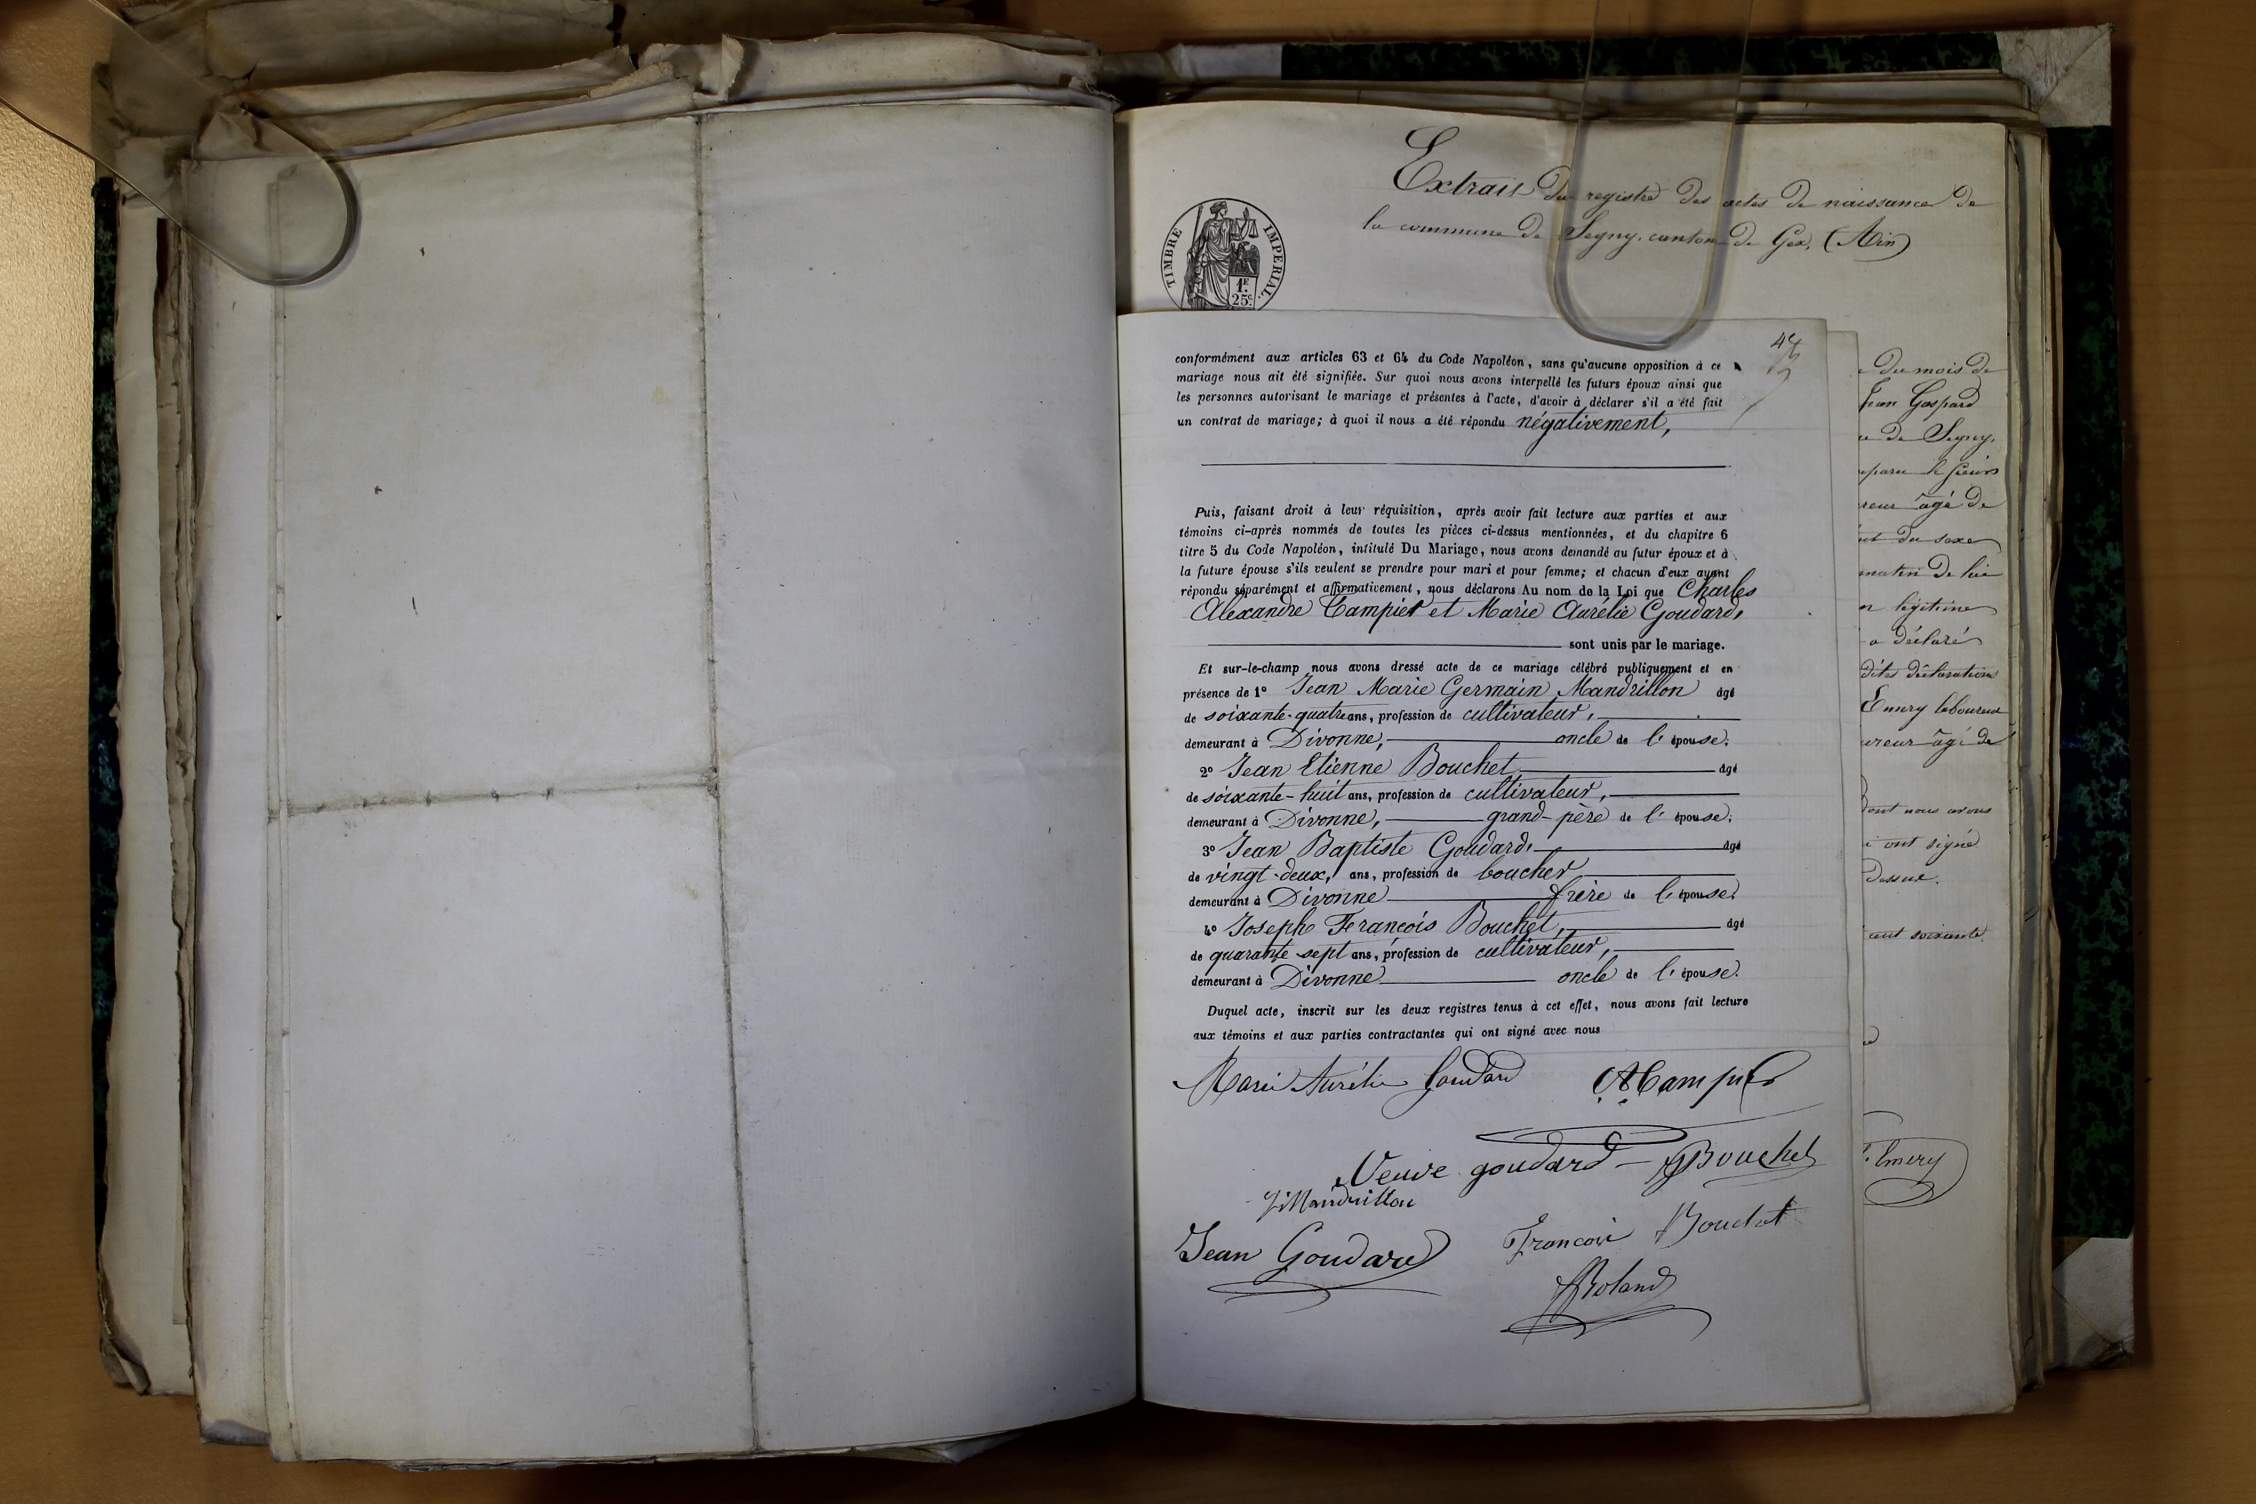 Extrait du registre des actes de naissance de
la commune de Segny, canton de Gex, (Ain)
TIMBRE IMPERIAL
1F.
25c.
44
conformément aux articles 63 et 64 du Code Napoléon, sans qu'aucune opposition à ce
mariage nous ait été signifiée. Sur quoi nous avons interpellé les futurs époux ainsi que
les personnes autorisant le mariage et présentes à l'acte, d'avoir à déclarer s'il a été fait
un contrat de mariage; à quoi il nous a été répondu négativement,
Puis, faisant droit à leur réquisition, après avoir fait lecture aux parties et aux
témoins ci-après nommés de toutes les pièces ci-dessus mentionnées, et du chapitre 6
titre 5 du Code Napoléon, intitulé Du Mariage, nous avons demandé au futur époux et à
la future épouse s'ils veulent se prendre pour mari et pour femme; et chacun d'eux ayant
répondu séparément et affirmativement, nous déclarons Au nom de la Loi que Charles
Alexandre Tampier et Marie Aurélie Goudard,
sont unis par le mariage.
Et sur-le-champ nous avons dressé acte de ce mariage célébré publiquement et en
présence de 1° Jean Marie Germain Mandrillon âgé
de soixante-quatre ans, profession de cultivateur,
demeurant à Divonne, oncle de l'épouse.
2° Jean Etienne Bouchet âgé
de soixante-huit ans, profession de cultivateur,
demeurant à Divonne, grand-père de l'épouse.
3° Jean Baptiste Goudard, âgé
de vingt-deux, ans, profession de boucher
demeurant à Divonne frère de l'épouse.
4° Joseph François Bouchet, âgé
de quarante sept ans, profession de cultivateur,
demeurant à Divonne oncle de l'épouse.
Duquel acte, inscrit sur les deux registres tenus à cet effet, nous avons fait lecture
aux témoins et aux parties contractantes qui ont signé avec nous
Marie Aurélie Goudard
Veuve goudard Bouchet
Mandrillon
Jean Goudard François Bouchet
Roland
du mois de
Jean Gaspard
de Segny,
âgé de
du sexe
matin de
légitime
a déclaré
déclaration
Emery laboureur
âgé de
dont nous avons
ont signé
dessus.
cent soixante.
Emery